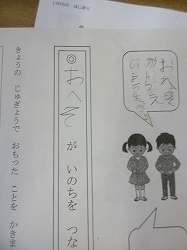 いのちの はじまり
◎おへそ が いのちを つな
きょうの じゅぎょうで おもった ことを かきま
おへそ